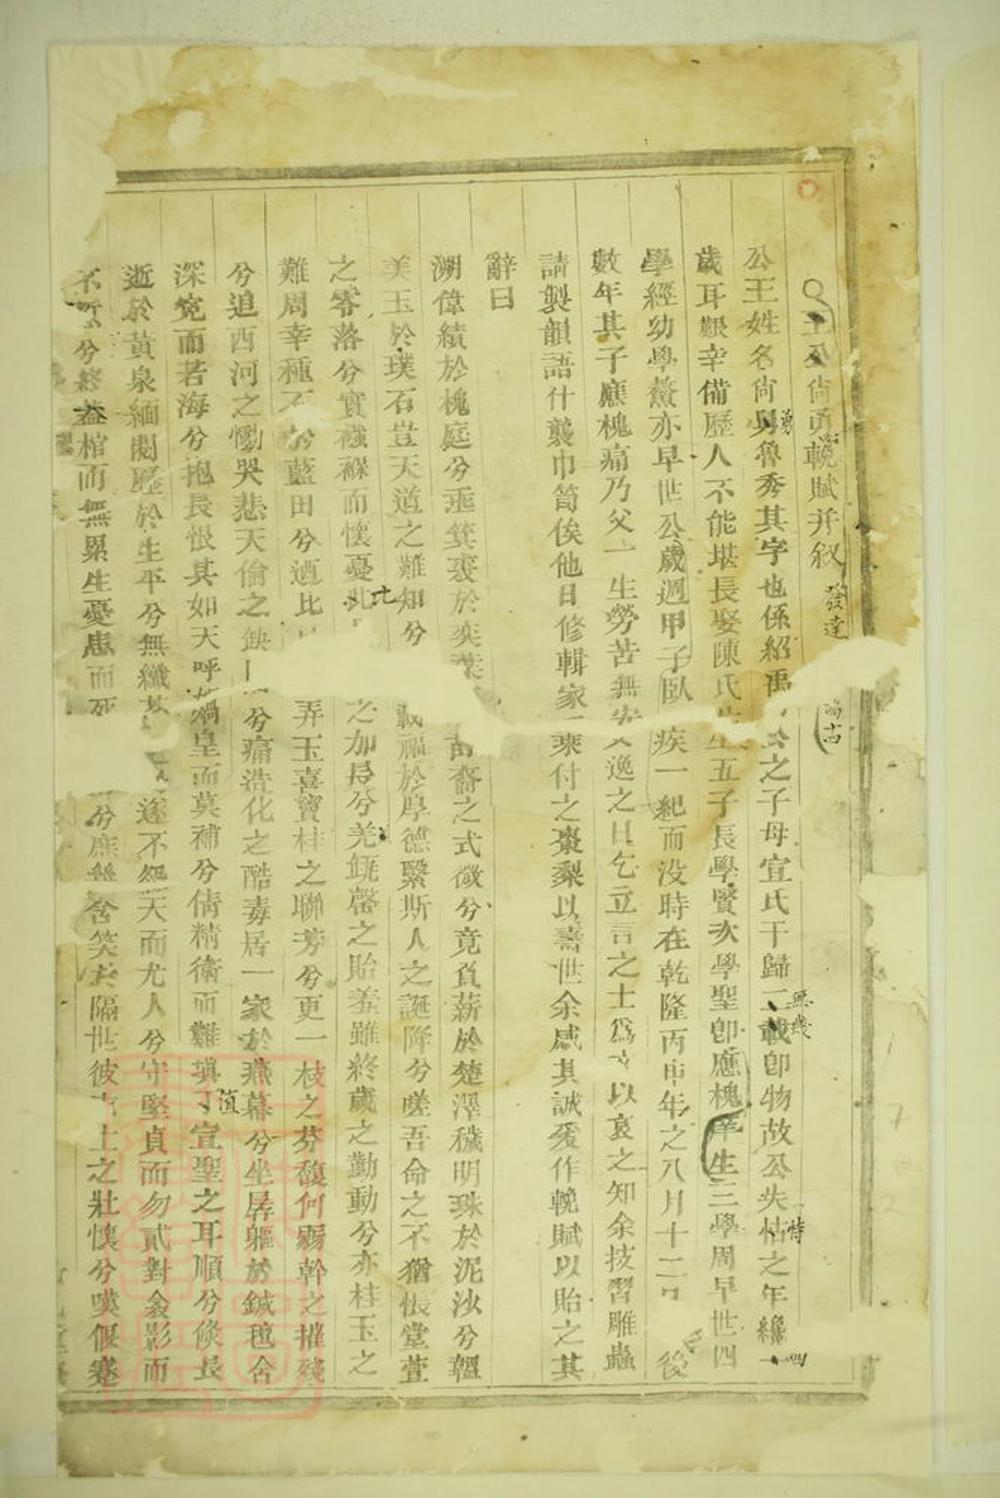 王公尙勇輓賦并叙 發達
公王姓名尙勇魯秀其字也係紹禹公之子母宣氏于歸二載卽物故公失怙之年纔一
歲耳艱辛備歷人不能堪長娶陳氏生五子長學賢次學聖卽應槐率生三學周早世四
學經幼學黌亦早世公歲週甲子臥疾一紀而没時在乾隆丙申年之八月十二日 後
數年其子應槐痛乃父一生勞苦無安逸之日乞立言之士爲文以哀之知余技習雕蟲
請製韻語什襲巾笥俟他日修輯家乘付之棗梨以壽世余感其誠爰作輓賦以貽之其
辭曰
溯偉績於槐庭兮垂箕裘於奕葉 裔之式微兮竟負薪於楚澤穢明珠於泥沙兮韞
美玉於璞石豈天道之難知兮 載福於厚德緊斯人之誕降兮嗟吾命之不猶悵堂萱
之零落兮實襁褓而懷憂 之加長兮羌缾罄之貽羞雖終歲之勤動兮亦桂玉之
難周幸種玉於藍田兮迺 弄玉喜寶桂之聯芳兮更一枝之芬馥何弱幹之摧殘
兮追西河之慟哭悲天倫之缺 兮痛造化之酷毒居一家於燕幕兮坐孱軀於鍼氊含
深寃而若海兮抱長恨其如天呼媧皇而莫補兮倩精衛而難塡 宣聖之耳順兮倏長
逝於黃泉緬閱歷於生平兮無纖 遂不怨天而尤人兮守堅貞而勿貳對衾影而
不 兮終蓋棺而無累生憂患而死 兮庶幾含笑於隔世彼 士之壯懷兮嘆偃蹇